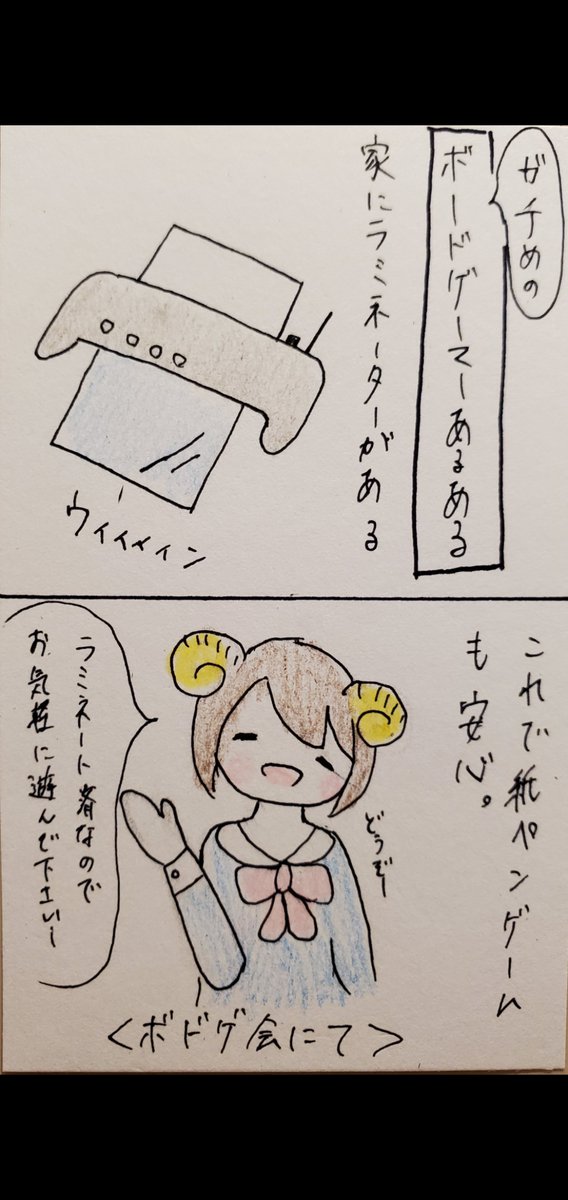 ガチめの
ボードゲーマーあるある
家にラミネーターがある
ウィイイィィン
これで紙ペンゲーム
も安心。
ラミネート済なので
お気軽に遊んで下さいー
どうぞー
<ボドゲ会にて>